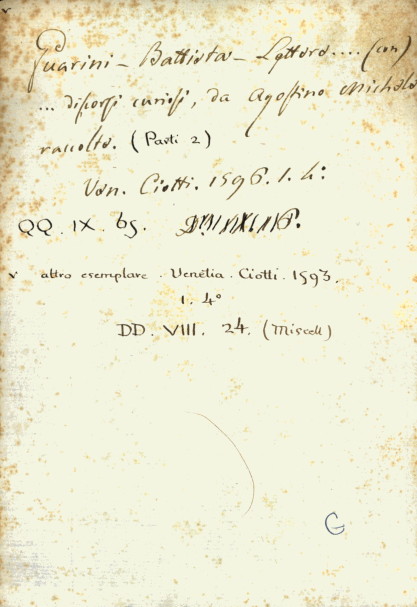 Guarini - Battista - Lettere.... (con)
... discorsi curiosi, da Agostino Michele
raccolte. (Parti 2)
Ven. Ciotti. 1596. 1. 4º
QQ. IX. 65.
v altro esemplare. Venetia. Ciotti. 1593.
1. 4º
DD. VIII. 24. (Miscell)
G